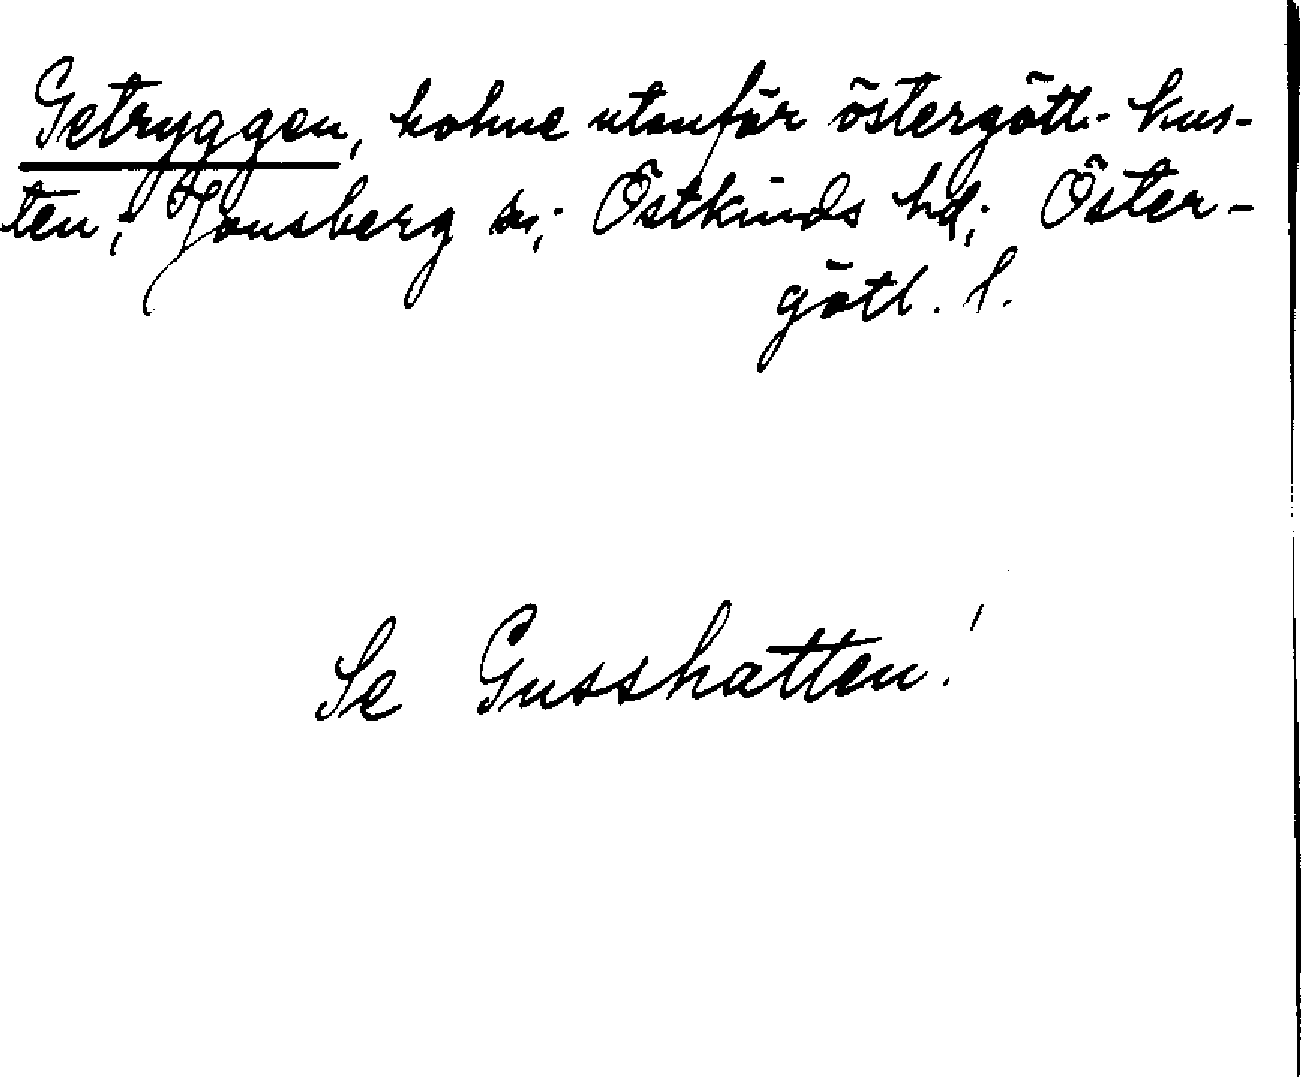 Getryggen, holme utanför östergötl. kus-
ten; Jonsberg sn; Östkinds hd; Öster-
götl. l.
Se Gusshatten!